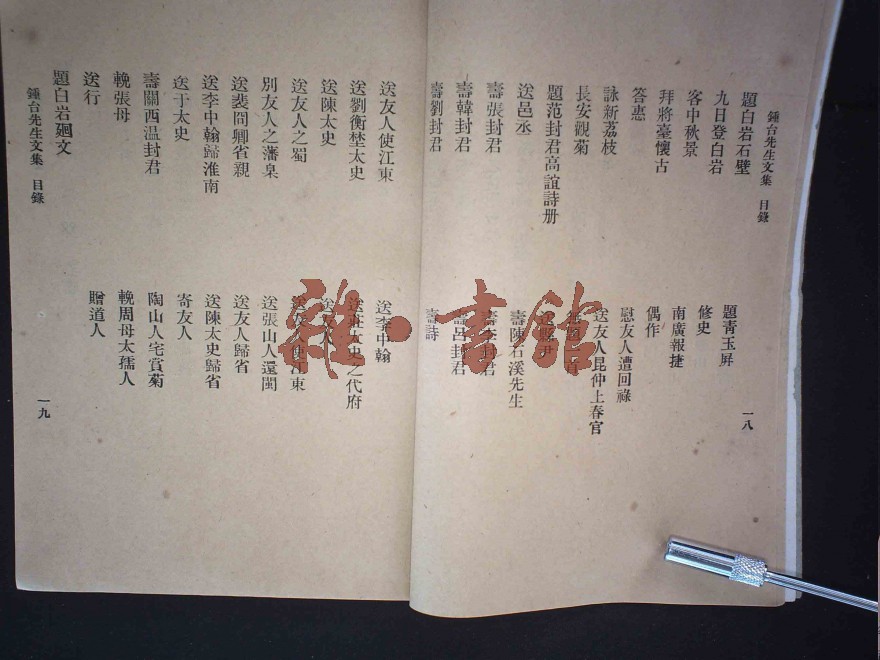 鍾台先生文集 目錄 一八
題白岩石壁
九日登白岩
客中秋景
拜將臺懷古
答惠
詠新荔枝
長安觀菊
題范封君高誼詩册
送邑丞
壽張封君
壽韓封君
壽劉封君
題青玉屏
修史
南廣報捷
偶作
慰友人遭回祿
送友人昆仲上春官
壽陳石溪先生
壽呂封君
壽詩
送友人使江東
送劉衡埜太史
送陳太史
送友人之蜀
別友人之藩臬
送裴問卿省親
送李中翰歸淮南
送于太史
壽關西温封君
輓張母
送行
題白岩廻文
送李中翰
太史之代府
送友人
送友人使江東
送張山人還閩
送友人歸省
送陳太史歸省
寄友人
陶山人宅賞菊
輓周母太孺人
贈道人
鍾台先生文集 目錄 一九
雜·書館